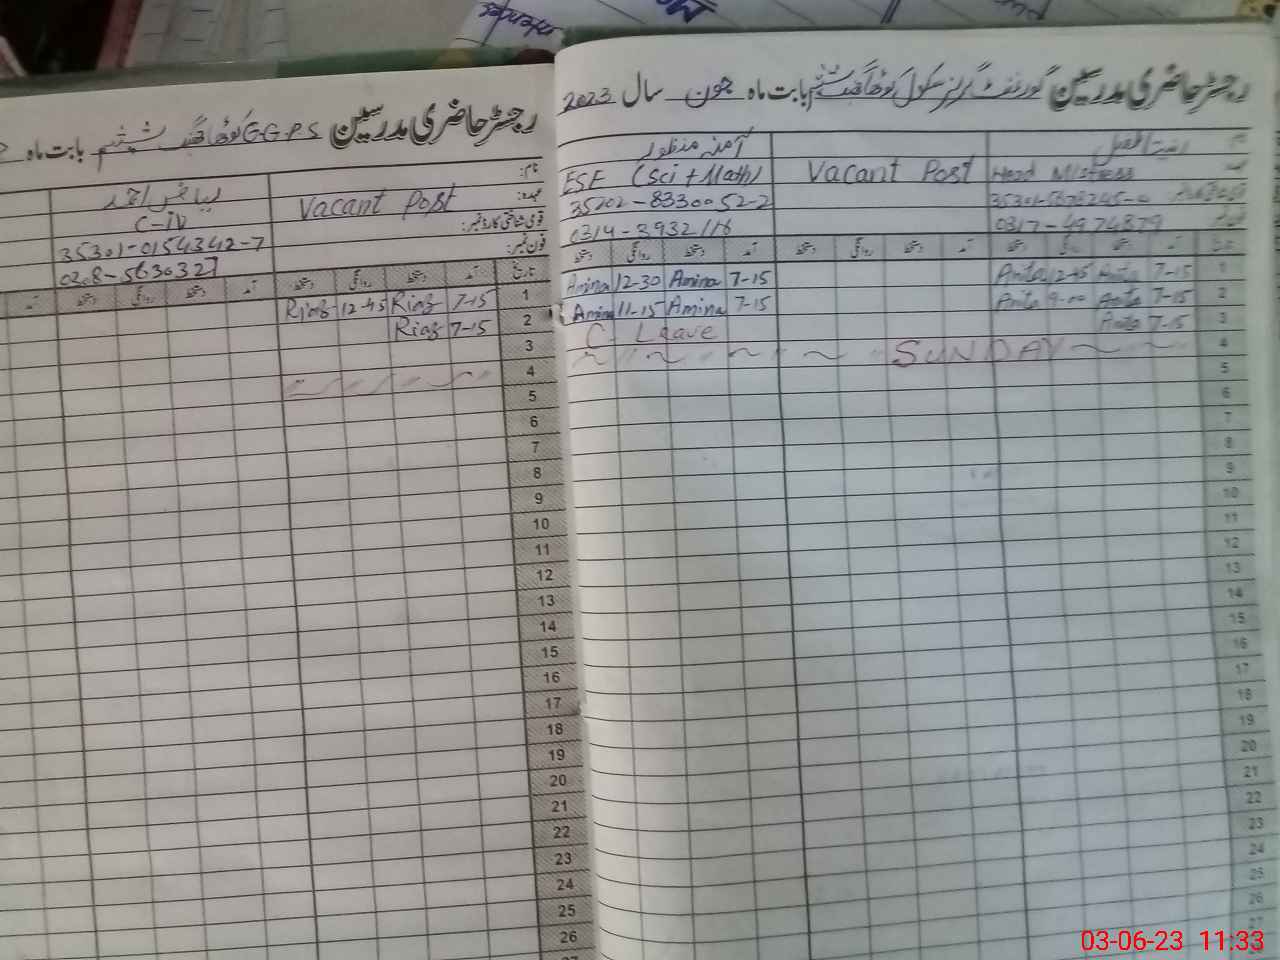 رجسٹر حاضری مدرسین گورنمنٹ گرلز سکول کوٹھا بابت ماہ جون سال 2023
آمنہ منظور
Head Mistress
Vacant Post
ESE (Sci + Math)
35202-8330052-2
0317-4974879
0314-3932116
تاریخ آمد دستخط روانگی دستخط آمد دستخط روانگی دستخط آمد دستخط روانگی دستخط
1 7-15 Anita 12-45 Anita 7-15 Amina 12-30 Amina
2 7-15 Anita 9-00 Anita 7-15 Amina 11-15 Amina
3 7-15 Anita C. Leave
4 SUNDAY
5
6
7
8
9
10
11
12
13
14
15
16
17
18
19
20
21
22
23
24
25
26
27
رجسٹر حاضری مدرسین G.G.P.S کوٹھا بابت ماہ
نام:
عہدہ: Vacant Post
ریاض احمد
C-IV
قومی شناختی کارڈ نمبر: 35301-0154342-7
فون نمبر:
تاریخ آمد دستخط روانگی دستخط آمد دستخط روانگی دستخط آمد
1 7-15 Riaz 12-45 Riaz
2 7-15 Riaz
3
4
5
6
7
8
9
10
11
12
13
14
15
16
17
18
19
20
21
22
23
24
25
26
27
03-06-23 11:33